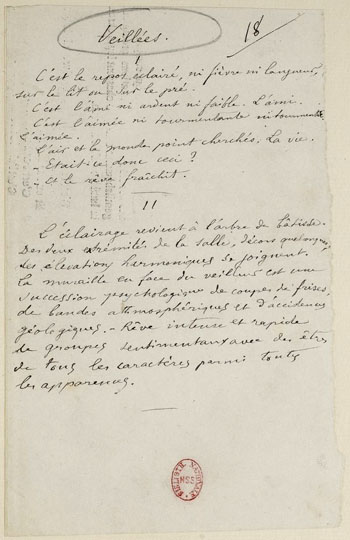 Veillées.
18
I
C'est le repos éclairé, ni fièvre ni langueur,
sur le lit ou sur le pré.
C'est l'ami ni ardent ni faible. L'ami.
C'est l'aimée ni tourmentante ni tourmentée.
L'aimée.
L'air et le monde point cherchés. La vie.
- Etait-ce donc ceci ?
- Et le rêve fraîchit.
II
L'éclairage revient à l'arbre de bâtisse.
Des deux extrémités de la salle, décors quelconques,
des élévations harmoniques se joignent.
La muraille en face du veilleur est une
succession psychologique de coupes de frises,
de bandes atmosphériques et d'accidences
géologiques. - Rêve intense et rapide
de groupes sentimentaux avec des êtres
de tous les caractères parmi toutes
les apparences.